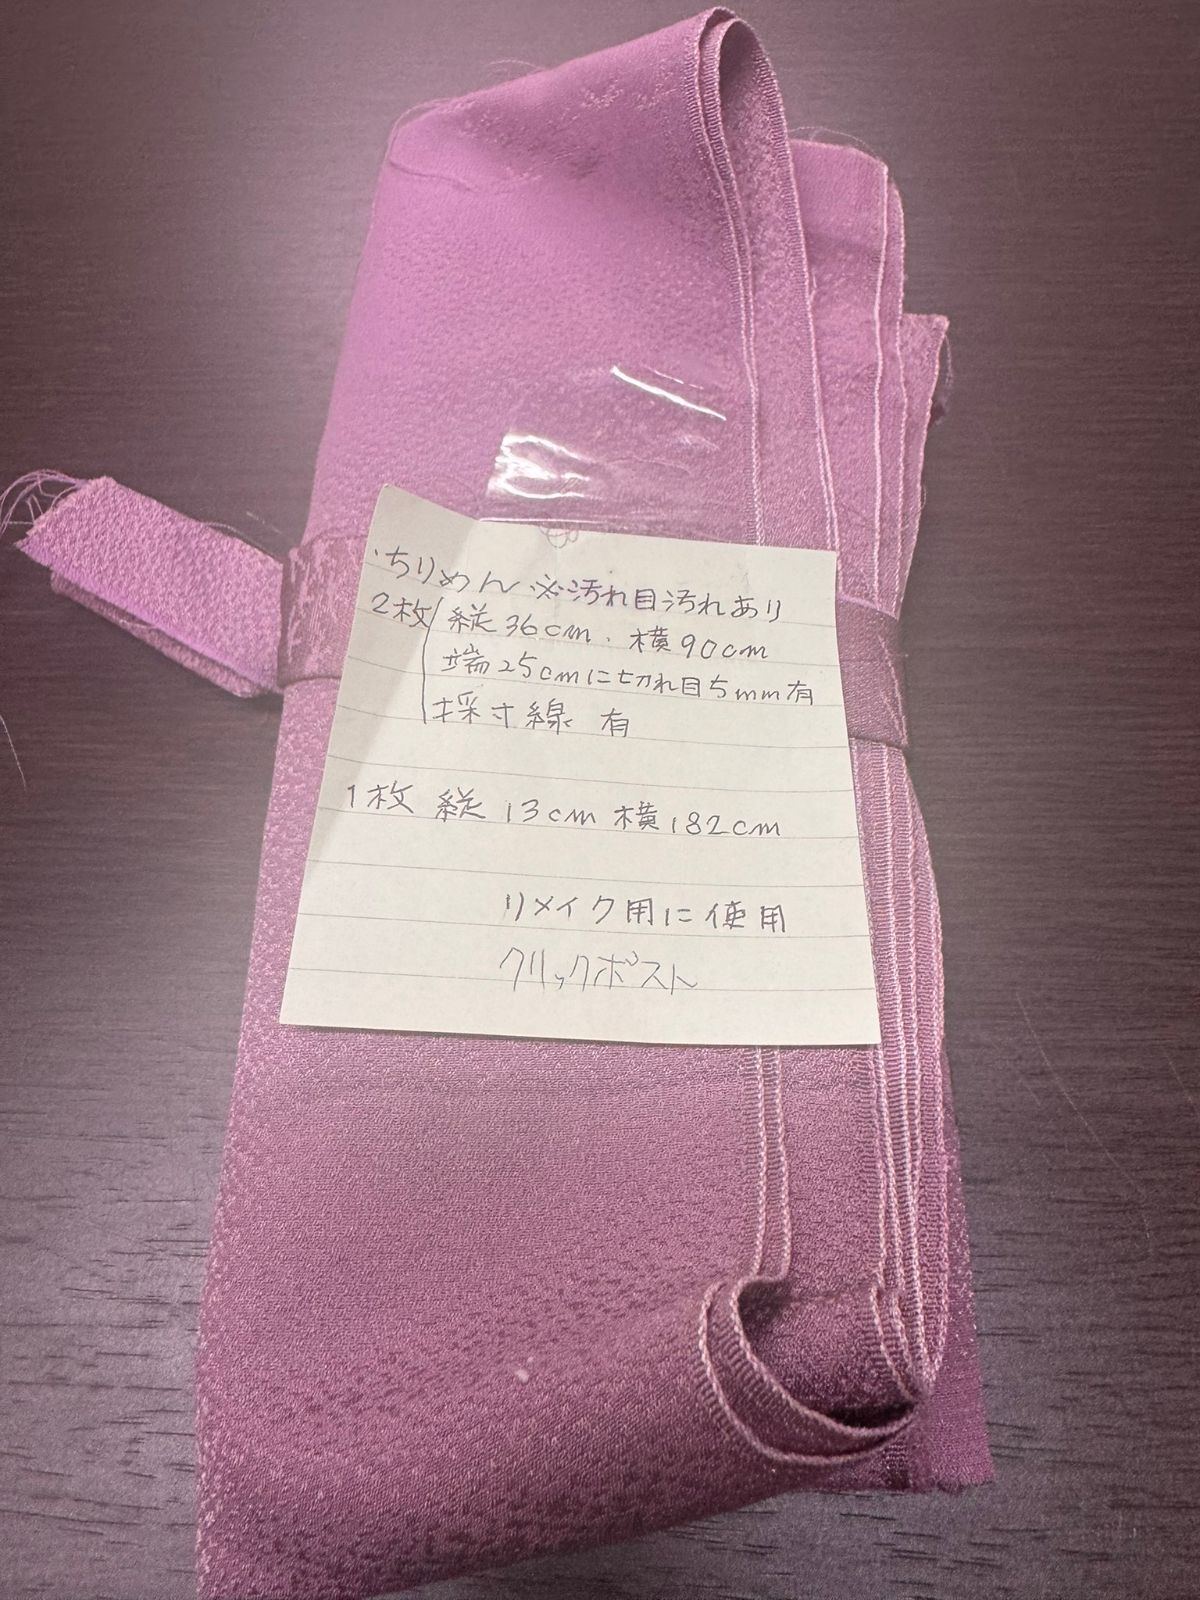 ・ちりめん ※汚れ目汚れあり
2枚 縦36cm、横90cm
端25cmに切れ目5mm有
採寸線 有
1枚 縦13cm 横182cm
リメイク用に使用
クリックポスト